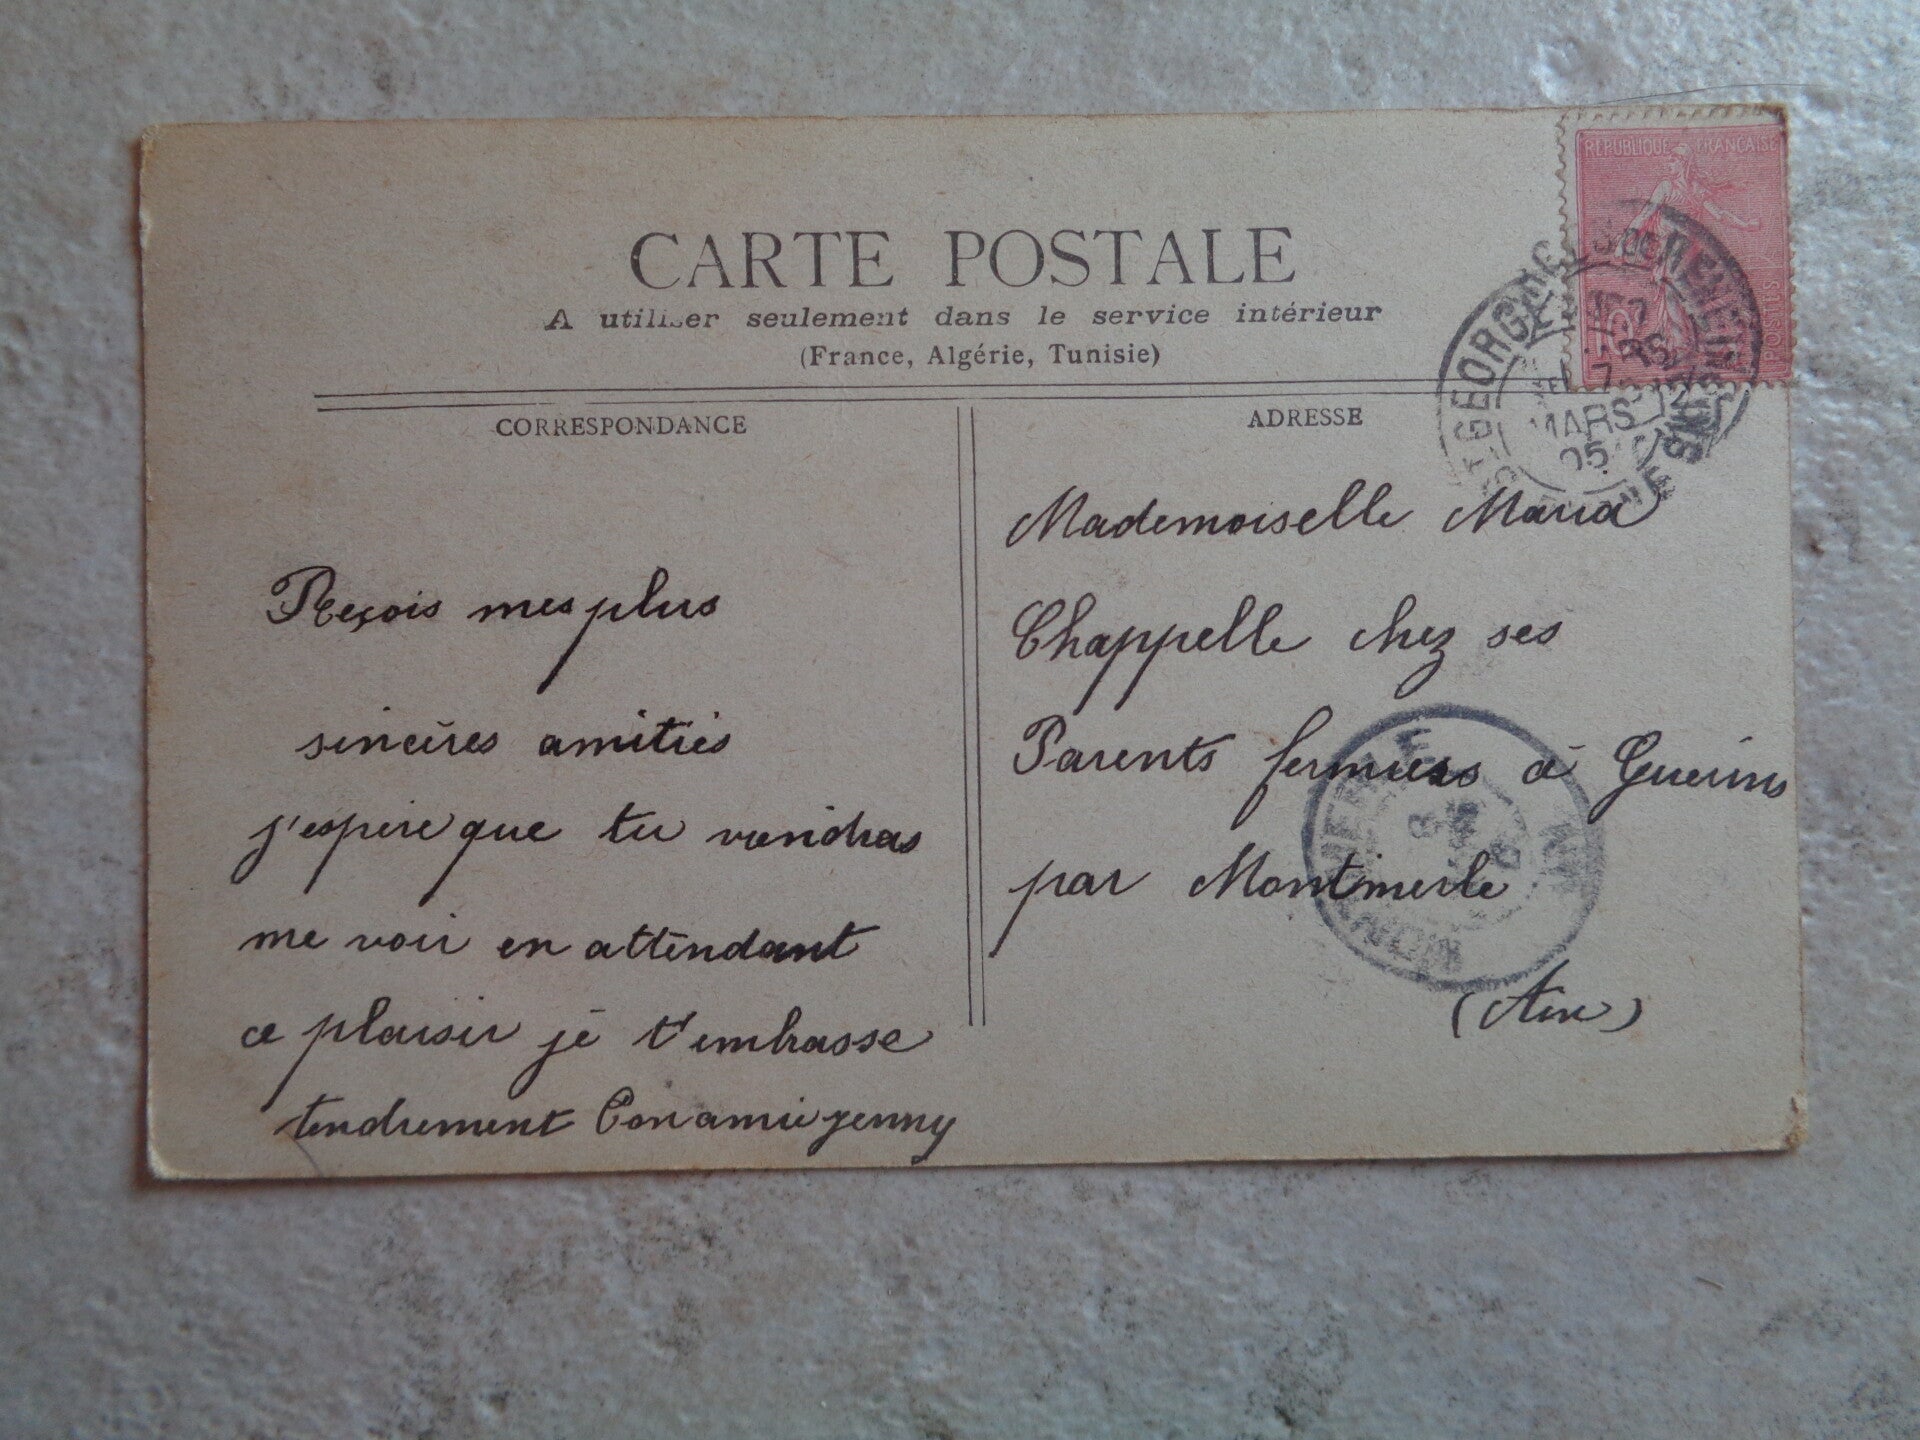 RÉPUBLIQUE FRANÇAISE
POSTES
CARTE POSTALE
A utiliser seulement dans le service intérieur
(France, Algérie, Tunisie)
CORRESPONDANCE
Reçois mes plus
sincères amitiés
j'espère que tu viendras
me voir en attendant
ce plaisir je t'embrasse
tendrement Ton amie jenny
ADRESSE
Mademoiselle Maria
Chappelle chez ses
Parents fermiers à Guerins
par Montmerle
(Ain)
ST GEORGES DE RENEINS
7
MARS
05
MONTMERLE
8
AIN